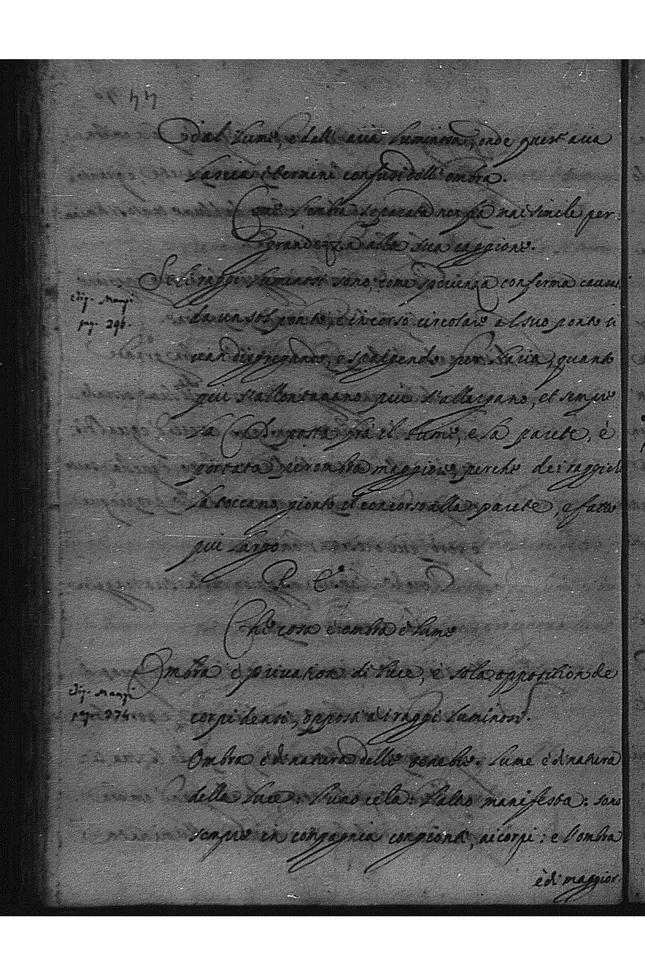 44
dal lume, e dall'aria luminosa, onde quest'aria
lascia i termini confusi dell'ombra.
Come l'ombra separata non fia mai simile per
grandezza alla sua caggione.
Se li raggi luminosi sono, come sperienza conferma causati
Edig. Manzi
pag. 296.
da un sol ponto, e in corso circolare al suo ponto si
van disgregando, e spargendo per l'aria, quanto
più s'allontanano più s'allargano, et sempre
la C posta frà il lume, e la parete, è
portata per ombra maggiore, perche dei raggi ch
la toccano, gionto il concorso alla parete, e fatto
più largo
P. C.
Che cosa è ombra è lume
Ombra è privation di luce, è sola opposition de
Edig. Manzi
pag. 274.
corpi densi, opposti à i raggi luminosi.
Ombra è di natura delle tenebre. Lume è di natura
della luce. l'uno cela: l'altro manifesta: sono
sempre in compagnia congionti, ai corpi: e l'ombra
è di maggior